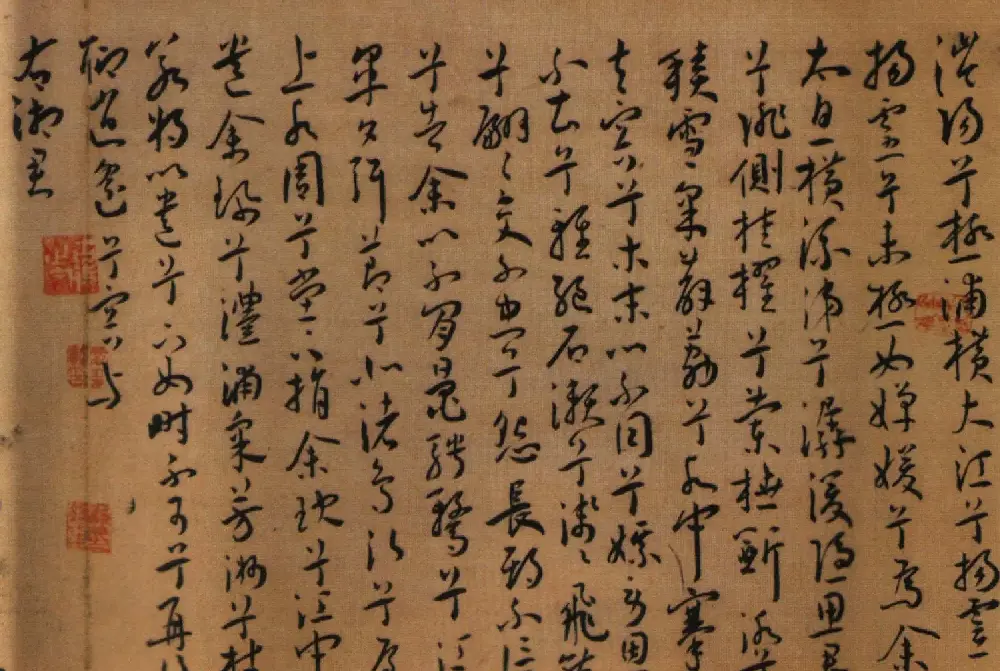 涔陽兮極浦橫大江兮揚靈
揚靈兮未極女嬋媛兮為余
太息橫流涕兮潺湲隱思君
兮悱側桂櫂兮蘭枻斲冰
積雪采薜荔兮水中搴
夫容兮木末心不同兮媒勞恩
不甚兮輕絕石瀨兮淺〻飛龍
兮翩〻交不忠兮怨長期不信
兮告余以不閒鼂騁騖兮江
皋夕弭節兮北渚鳥次兮屋
上水周兮堂下捐余玦兮江中
遺余珮兮澧浦采芳洲兮杜
若將以遺兮下女時不可兮再
聊逍遙兮容與
右湘君